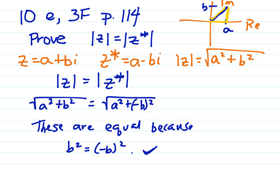 10 e, 3F p. 114
Prove |z| = |z*|
b
Im
Re
a
z = a + bi z* = a - bi |z| = √(a² + b²)
|z| = |z*|
√(a² + b²) = √(a² + (-b)²)
These are equal because
b² = (-b)². ✓